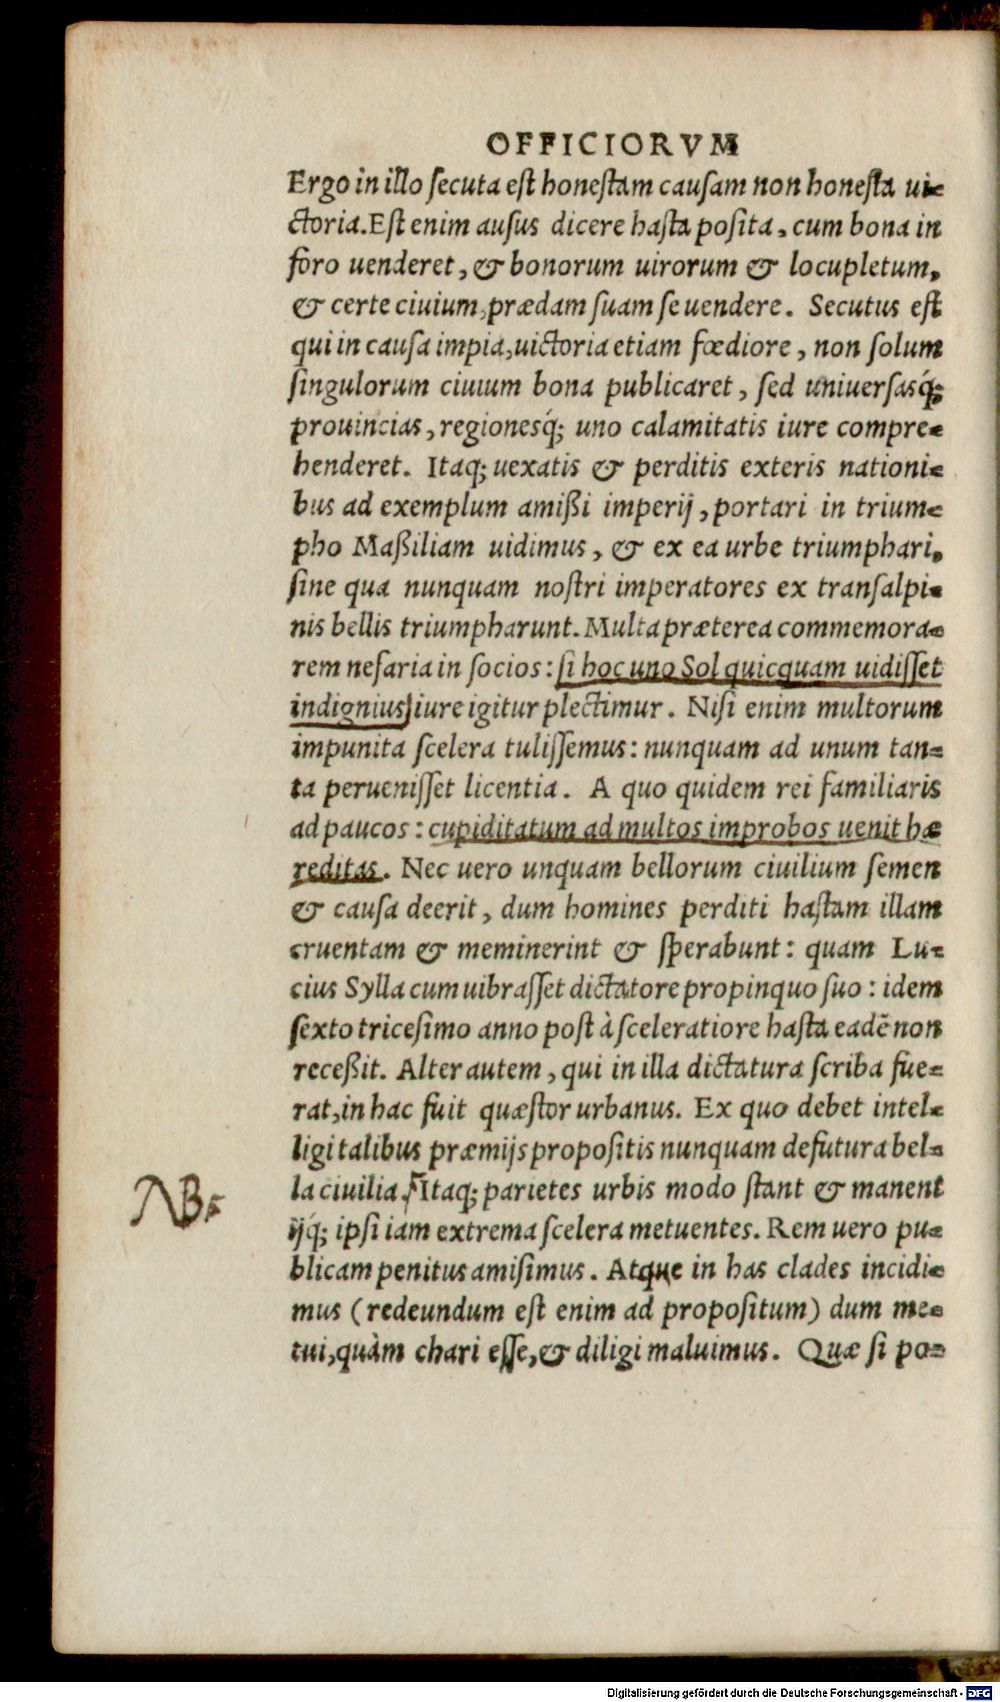 OFFICIORVM
Ergo in illo ſecuta eſt honeſtam cauſam non honeſta ui-
ctoria. Eſt enim auſus dicere haſta poſita, cum bona in
foro uenderet, & bonorum uirorum & locupletum,
& certe ciuium, prædam ſuam ſe uendere. Secutus eſt
qui in cauſa impia, uictoria etiam fœdiore, non ſolum
ſingulorum ciuium bona publicaret, ſed uniuerſasq́;
prouincias, regionesq́; uno calamitatis iure compre-
henderet. Itaq; uexatis & perditis exteris nationi-
bus ad exemplum amißi imperij, portari in trium-
pho Maßiliam uidimus, & ex ea urbe triumphari,
ſine qua nunquam noſtri imperatores ex tranſalpi-
nis bellis triumpharunt. Multa præterea commemora-
rem nefaria in ſocios: ſi hoc uno Sol quicquam uidiſſet
indignius, iure igitur plectimur. Niſi enim multorum
impunita ſcelera tuliſſemus: nunquam ad unum tan-
ta perueniſſet licentia. A quo quidem rei familiaris
ad paucos: cupiditatum ad multos improbos uenit hæ
reditas. Nec uero unquam bellorum ciuilium ſemen
& cauſa deerit, dum homines perditi haſtam illam
cruentam & meminerint & ſperabunt: quam Lu-
cius Sylla cum uibraſſet dictatore propinquo ſuo: idem
ſexto triceſimo anno poſt à ſceleratiore haſta eadē non
receßit. Alter autem, qui in illa dictatura ſcriba fue-
rat, in hac fuit quæſtor urbanus. Ex quo debet intel-
ligi talibus præmijs propoſitis nunquam defutura bel-
la ciuilia. Itaq; parietes urbis modo ſtant & manent
NB.
ijq́; ipſi iam extrema ſcelera metuentes. Rem uero pu-
blicam penitus amiſimus. Atque in has clades incidi-
mus (redeundum eſt enim ad propoſitum) dum me-
tui, quàm chari eſſe, & diligi maluimus. Quæ ſi po-
Digitalisierung gefördert durch die Deutsche Forschungsgemeinschaft - DFG